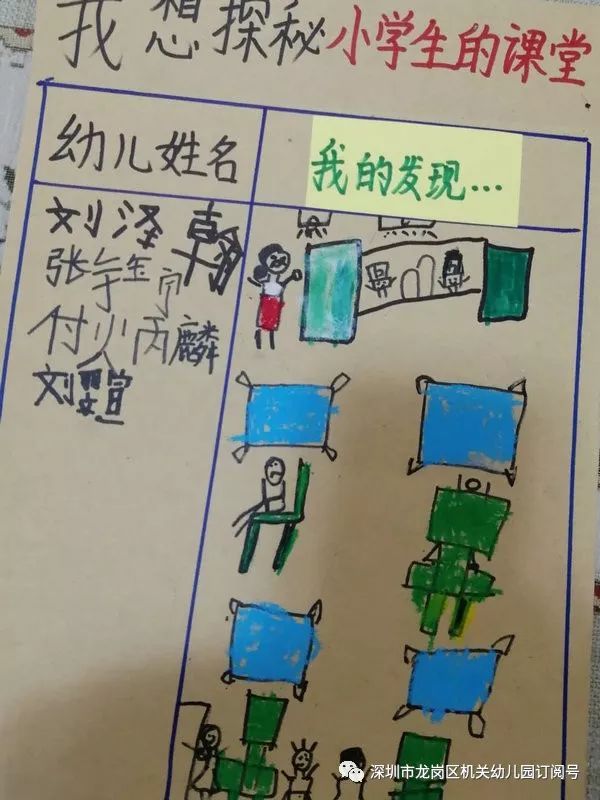 我想探秘小学生的课堂
幼儿姓名
我的发现...
刘泽翰
张
付火丙麟
刘
深圳市龙岗区机关幼儿园订阅号